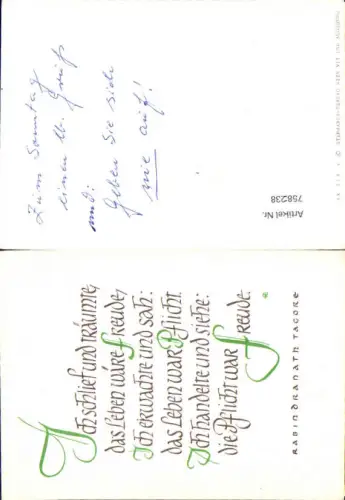 Zum Sonntag
einen lb. Gruß
und:
Geben Sie sich
nie auf!
Artikel Nr.
758238
Ich schlief und träumte,
das Leben wäre Freude,
Ich erwachte und sah:
das Leben war Pflicht.
Ich handelte und siehe:
die Pflicht war Freude.
RABINDRANATH TAGORE